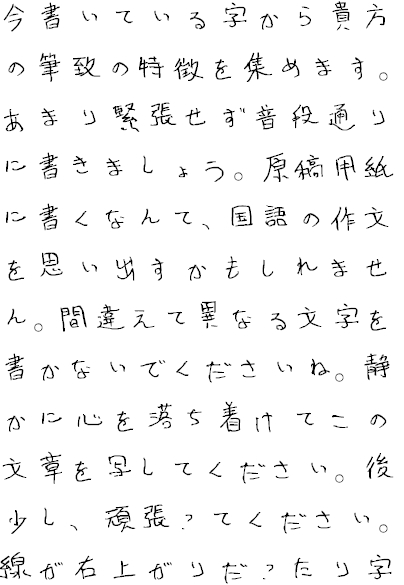 今書いている字から貴方
の筆致の特徴を集めます。
あまり緊張せず普段通り
に書きましょう。原稿用紙
に書くなんて、国語の作文
を思い出すかもしれませ
ん。間違えて異なる文字を
書かないでくださいね。静
かに心を落ち着けてこの
文章を写してください。後
少し、頑張ってください。
線が右上がりだったり字